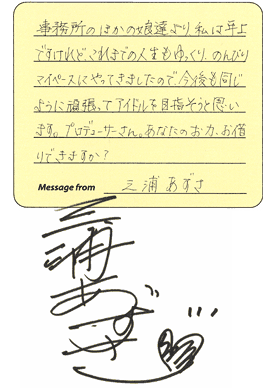 事務所のほかの娘達より、私は年上
ですけれど、これまでの人生もゆっくり、のんびり
マイペースにやってきましたので、今後も同じ
ように頑張ってアイドルを目指そうと思い
ます。プロデューサーさん。あなたのお力、お借
りできますか?
Message from 三浦あずさ
三浦あずさ